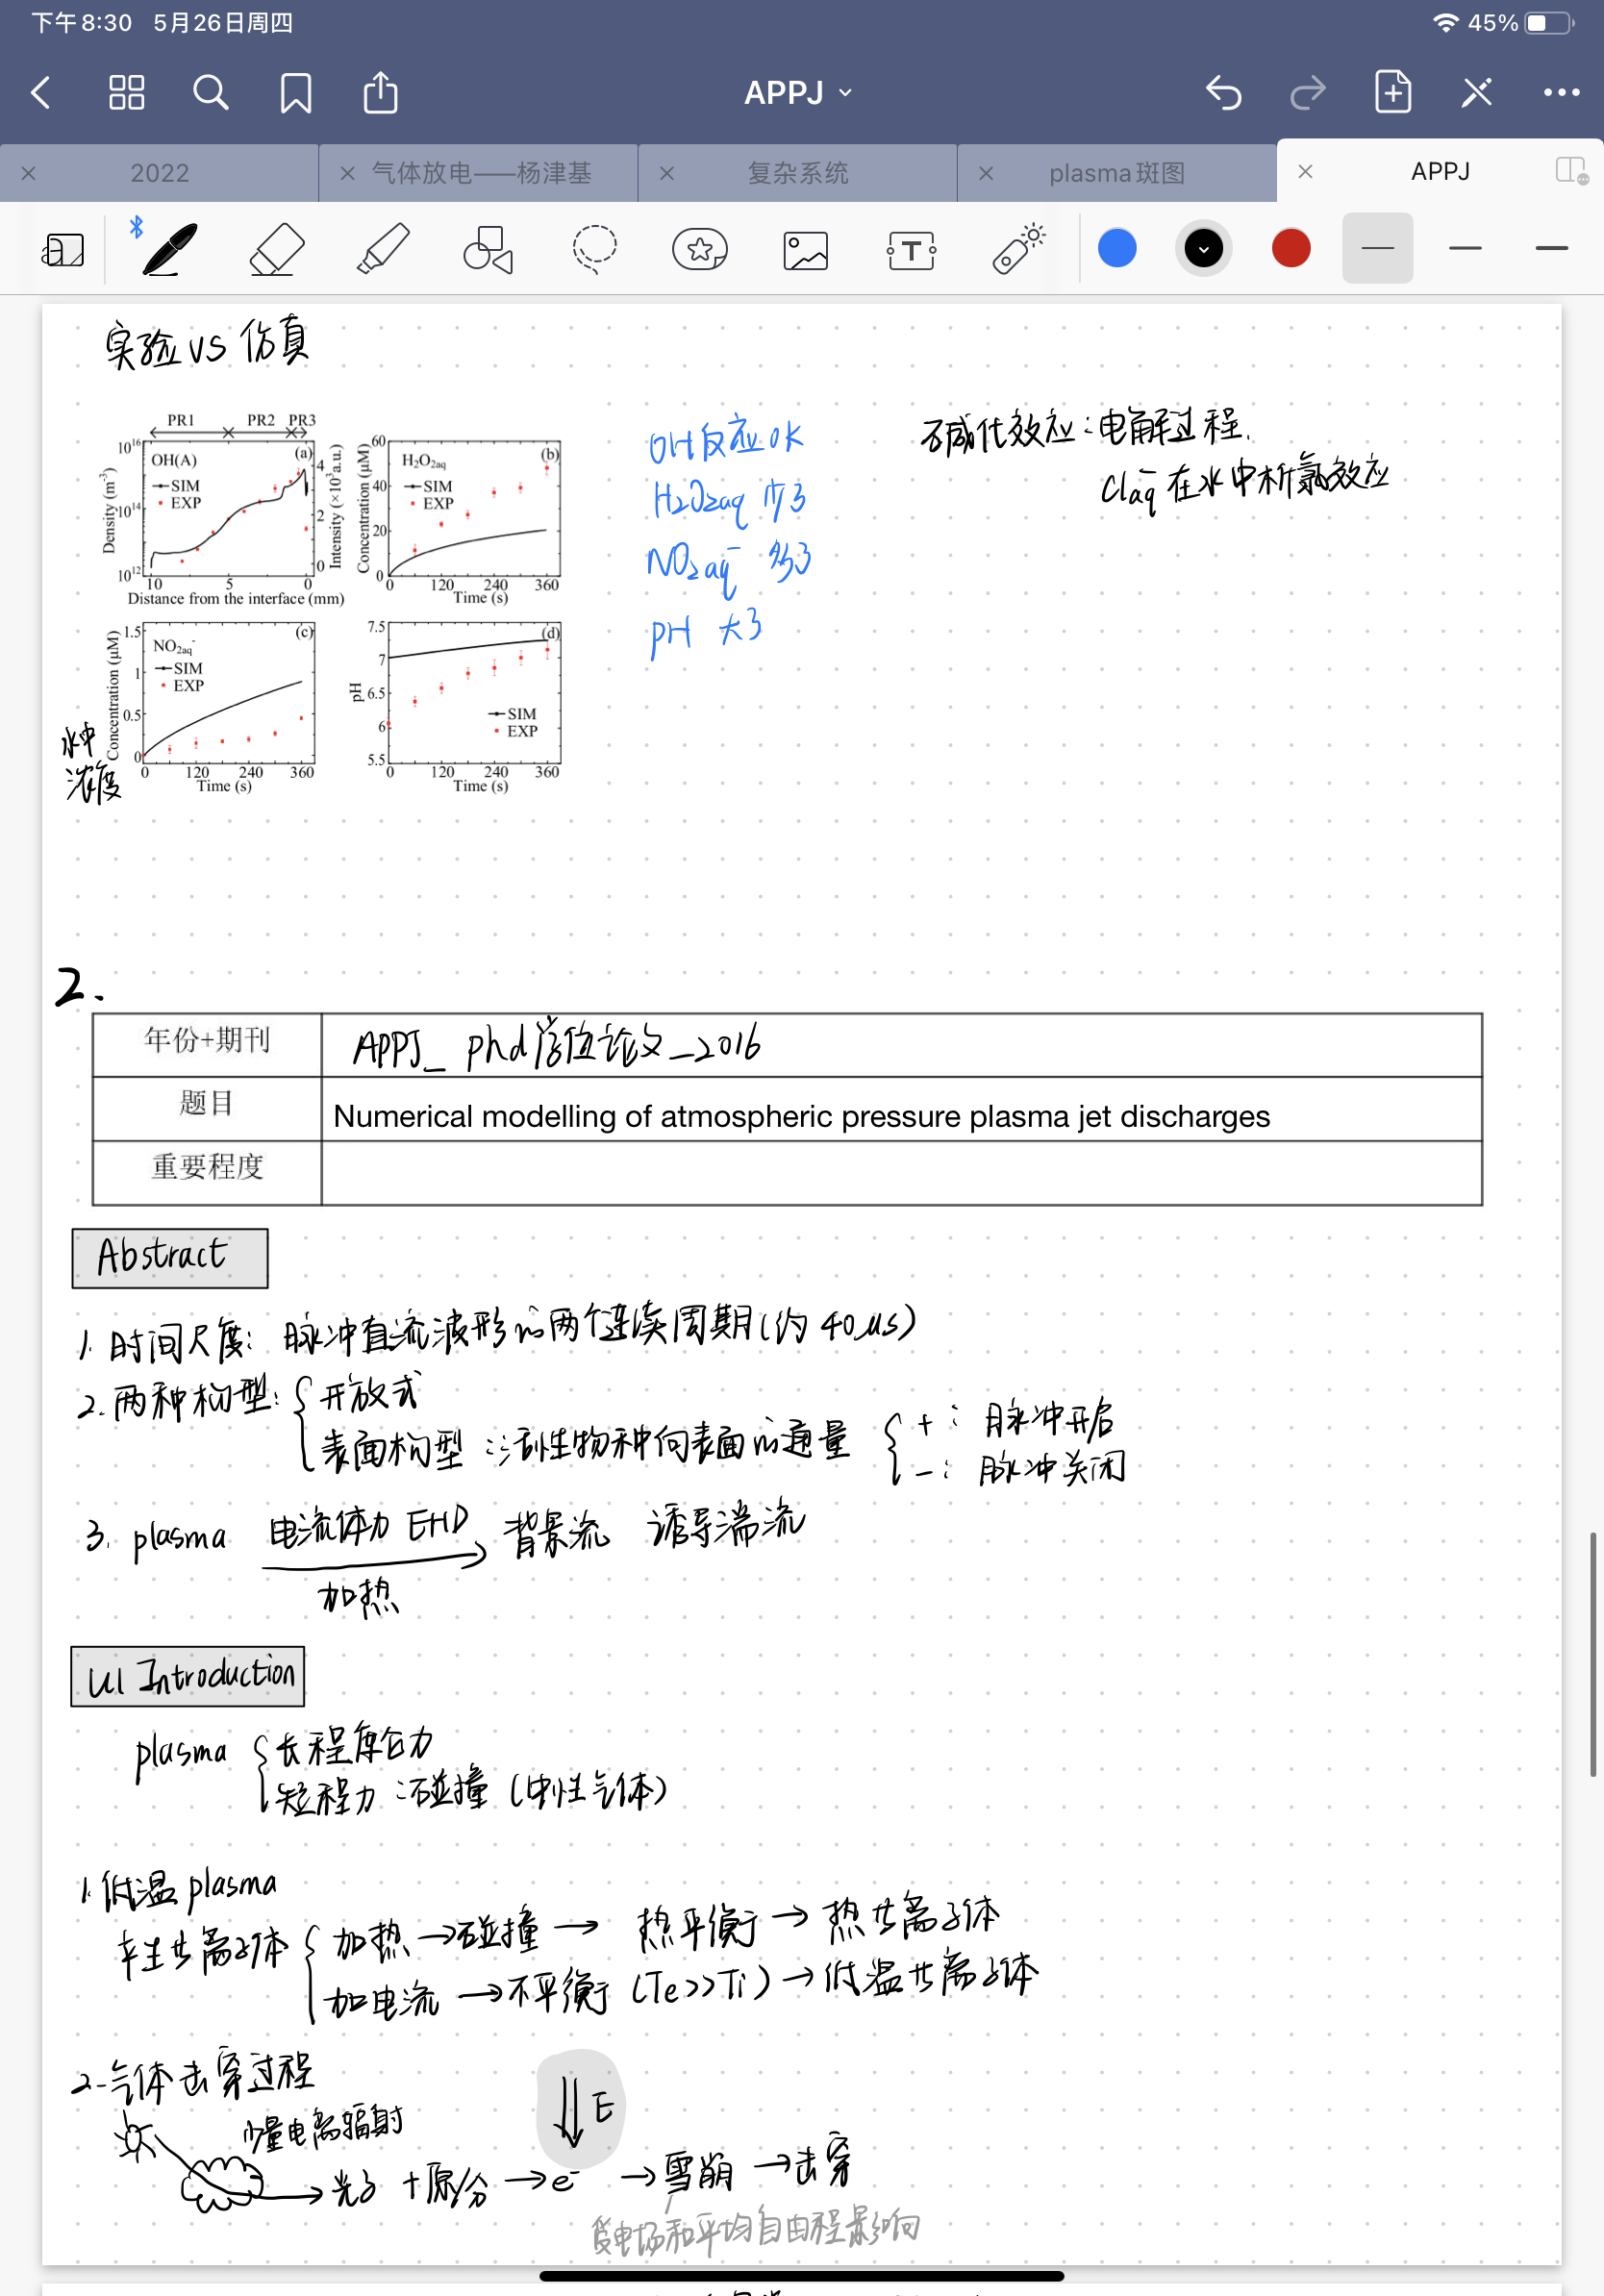 下午8:30 5月26日周四
45%
APPJ
2022
气体放电——杨津基
复杂系统
plasma斑图
APPJ
T
实验 vs 仿真
PR1 PR2 PR3
(a)
OH(A)
SIM
EXP
10^16
10^14
10^12
Density (m^-3)
4
2
0
Intensity (×10^3a.u.)
10 5 0
Distance from the interface (mm)
(b)
H₂O₂aq
SIM
EXP
60
40
20
0
Concentration (μM)
0 120 240 360
Time (s)
(c)
NO₂aq⁻
SIM
EXP
1.5
1
0.5
0
Concentration (μM)
0 120 240 360
Time (s)
(d)
SIM
EXP
7.5
7
6.5
6
5.5
pH
0 120 240 360
Time (s)
水中
浓度
OH反应OK
H₂O₂aq 少了
NO₂aq⁻ 多了
pH 大了
碱化效应:电解过程.
Claq⁻在水中析氯效应
2.
年份+期刊
APPJ_ phd学位论文_2016
题目
Numerical modelling of atmospheric pressure plasma jet discharges
重要程度
Abstract
1. 时间尺度: 脉冲直流波形的两个连续周期(约 40μs)
2. 两种构型: 开放式
表面构型:活性物种向表面的通量
+: 脉冲开启
-: 脉冲关闭
3. plasma 电流体力 EHD 背景流 诱导湍流
加热
U1 Introduction
plasma 长程库仑力
短程力:碰撞(中性气体)
1. 低温plasma
产生等离子体 加热→碰撞→ 热平衡→热等离子体
加电流→不平衡(Te>>Ti)→低温等离子体
2. 气体击穿过程
少量电离辐射
E
光子+原/分→e⁻→雪崩→击穿
受电场和平均自由程影响